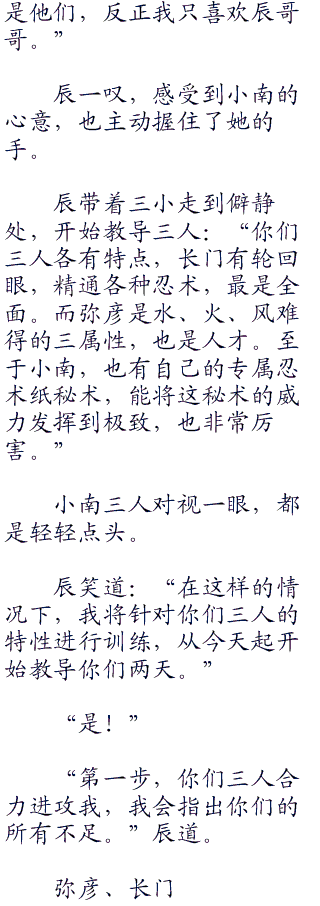 是他们，反正我只喜欢辰哥
哥。”
辰一叹，感受到小南的
心意，也主动握住了她的
手。
辰带着三小走到僻静
处，开始教导三人：“你们
三人各有特点，长门有轮回
眼，精通各种忍术，最是全
面。而弥彦是水、火、风难
得的三属性，也是人才。至
于小南，也有自己的专属忍
术纸秘术，能将这秘术的威
力发挥到极致，也非常厉
害。”
小南三人对视一眼，都
是轻轻点头。
辰笑道：“在这样的情
况下，我将针对你们三人的
特性进行训练，从今天起开
始教导你们两天。”
“是！”
“第一步，你们三人合
力进攻我，我会指出你们的
所有不足。”辰道。
弥彦、长门